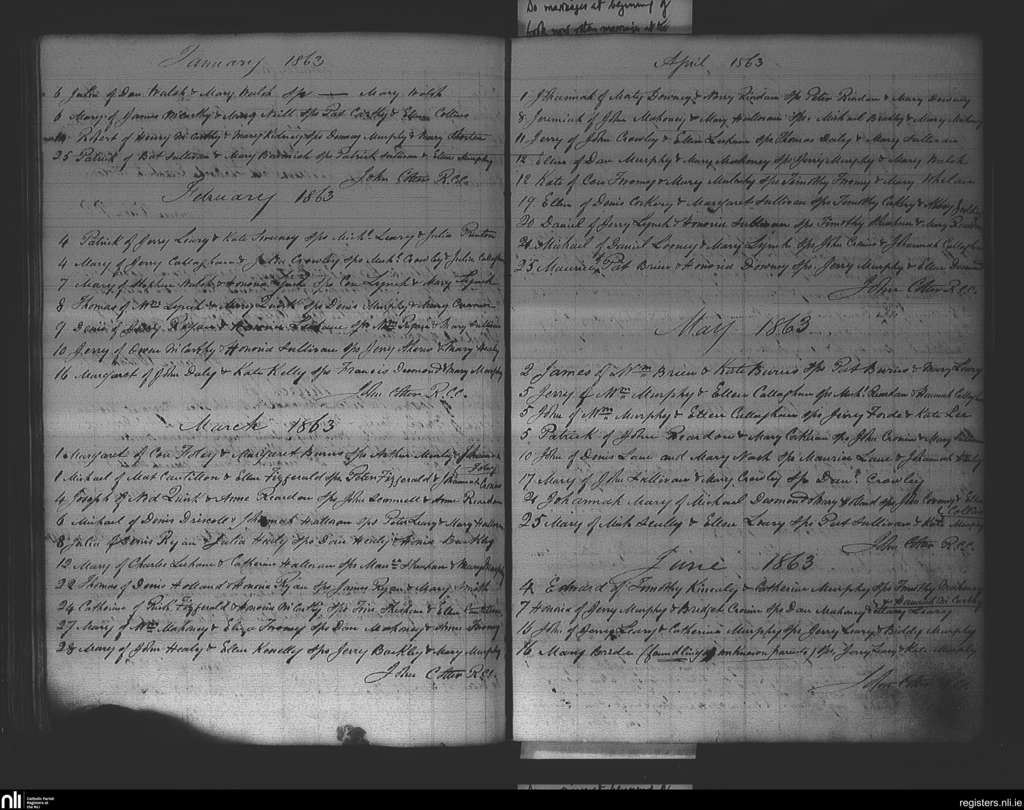 Do marriages at beginning of
book not other marriages at the
January 1863
6 Julia of Dan Walsh & Mary Walsh Sps — Mary Walsh
6 Mary of James McCarthy & Mary Neill Sps Pat Carthy & Ellen Collins
Robert of Henry McCarthy & Mary Kidney Sps Denny Murphy & Mary
25 Patrick of Bat Sullivan & Mary Sps Patrick Sullivan & Ellen Murphy
John Cotter R.C.C.
February 1863
4 Patrick of Jerry Leary & Kate Sweeney Sps Michl Leary & Julia
4 Mary of Jerry Callaghan & Julia Crowley Sps Michl Crowley & Julia Callaghan
7 Mary of Stephen Walsh & Honora Lynch Sps Con Lynch & Mary Lynch
8 Thomas of Wm Lynch & Mary Quirk Sps Denis Murphy & Mary
9 Denis of Sps Wm & Mary Sullivan
10 Jerry of Owen McCarthy & Honora Sullivan Sps Jerry Ahern & Mary Healy
16 Margaret of John Daly & Kate Kelly Sps Francis Desmond & Mary Murphy
John Cotter R.C.C.
March 1863
1 Margaret of Con Foley & Margaret Sps Arthur & Johannah
Foley
1 Michael of Mat Cantillon & Ellen Fitzgerald Sps Peter Fitzgerald & Johannah
4 Joseph of Quirk & Anne Reardon Sps John & Anne Reardon
6 Michael of Denis Driscoll & Johannah Halloran Sps Peter Leary & Mary Halloran
8 Julia of Denis Ryan & Julia Healy Sps Dan Healy & Buckley
12 Mary of Charles Linhane & Catherine Halloran Sps & Mary
22 Thomas of Denis Holland & Honora Ryan Sps James Ryan & Mary Smith
24 Catherine of Richd Fitzgerald & Honora McCarthy Sps & Ellen
27 Mary of Wm Mahoney & Eliza Twomey Sps Dan Mahoney & Anne Twomey
28 Mary of John Healy & Ellen Kenelly Sps Jerry Buckley & Mary Murphy
John Cotter R.C.C.
April 1863
1 Johannah of Maty Downey & Mary Riordan Sps Peter Riordan & Mary Downey
8 Jeremiah of John Mahoney & Mary Halloran Sps Michael & Mary Mahony
11 Jerry of John Crowley & Ellen Linhan Sps Thomas Daley & Mary Sullivan
12 Ellen of Dan Murphy & Mary Mahoney Sps Jerry Murphy & Mary Walsh
12 Kate of Con Twomey & Mary Sps Timothy Twomey & Mary Whelan
19 Ellen of Denis Corkery & Margaret Sullivan Sps Timothy & Abbey
20 Daniel of Jerry Lynch & Honora Sullivan Sps Timothy & Mary
21 Michael of Daniel Looney & Mary Lynch Sps John Cronin & Johannah Callaghan
25 Maurice of Pat Brien & Honora Downey Sps Jerry Murphy & Ellen Desmond
John Cotter R.C.C.
May 1863
2 James of Wm Brien & Kate Burns Sps Pat Burns & Mary Leary
5 Jerry of Wm Murphy & Ellen Callaghan Sps Michl Riordan & Hannah Callaghan
5 John of Wm Murphy & Ellen Callaghan Sps Jerry Forde & Kate Lee
5 Patrick of John Reardon & Mary Corkran Sps John Cronin & Mary Sullivan
10 John of Denis Lane and Mary Nash Sps Maurice Lane & Johannah
17 Mary of John Sullivan & Mary Crowley Sps Danl Crowley
21 Johannah Mary of Michael Desmond & Mary Sps John & Ellen
Collins
25 Mary of Mich Scully & Ellen Leary Sps Pat Sullivan & Kate Murphy
John Cotter R.C.C.
June 1863
4 Edward of Timothy Kinealy & Catherine Murphy Sps Timothy
& Hannah McCarthy
7 Honora of Jerry Murphy & Bridget Cronin Sps Dan Mahoney & Leary
15 John of Denny Leary & Catherine Murphy Sps Jerry Leary & Biddy Murphy
16 Mary Bride (foundling of unknown parents) Sps Jerry Leary & Kate Murphy
John Cotter R.C.C.
nli Catholic Parish
Registers at
the NLI
registers.nli.ie